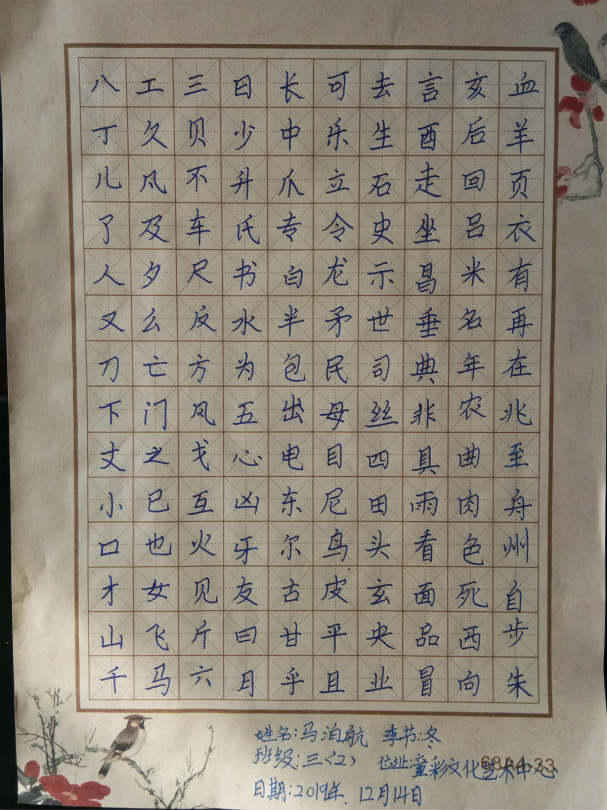 八工三日长可去言亥血
丁久贝少中乐生酉后羊
儿凡不升爪立石走回页
了及车氏专令史坐吕衣
人夕尺书白龙示昌米有
又么反水半矛世垂名再
刀亡方为包民司典年在
下门风五出母丝非农兆
丈之戈心电目四具曲至
小已互凶东尼田雨肉舟
口也火牙尔鸟头看色州
才女见友古皮玄面死自
山飞斤曰甘平央品西步
千马六月乎且业冒向朱
姓名:马泊航 季节:冬
班级:三〈2〉 位址:童彩文化艺术中心
日期:2019年 12月14日